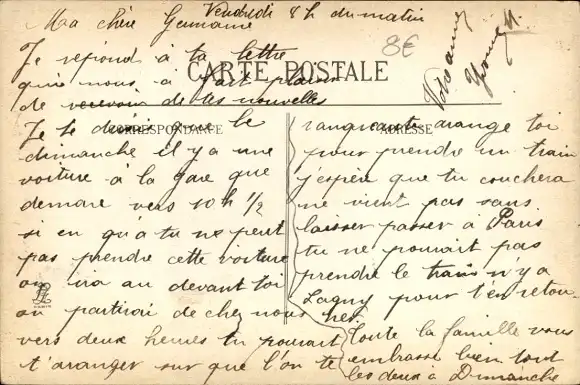 Vendredi 8h du matin
Ma chère Germaine
8€
Je repond à ta lettre
qui nous a fait plaisir
de recevoir de tes nouvelles
CARTE POSTALE
CORRESPONDANCE
ADRESSE
Je te dirais que le
dimanche il y a une
voiture à la gare que
demare vers 10h 1/2
si en qu'à tu ne peut
pas prendre cette voiture
on ira au devant toi
on partirai de chez nous
vers deux heures tu pourait
t'aranger sur que l'on te
arange toi
pour prendre un train
j'espère que tu couchera
ne vient pas sans
laisser passer à Paris
tu ne pourait pas
prendre le train n'y a
Lagny pour t'en retou-
ner
Toute la famille vous
embrasse bien tout
les deux à Dimanche
Yvonne